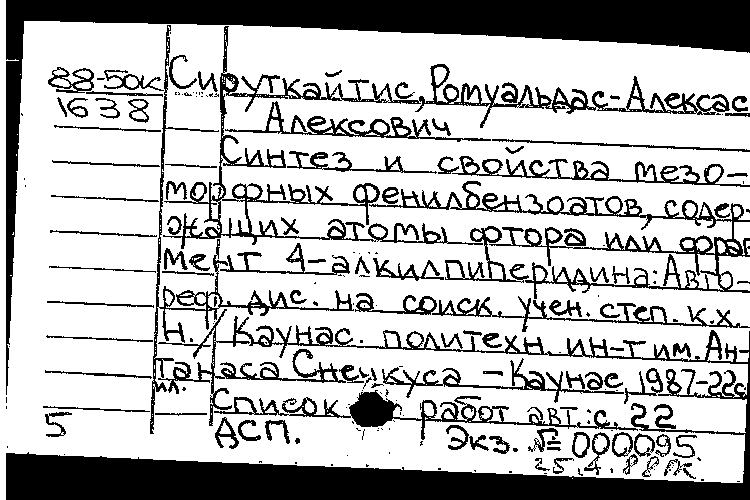 88-50к Сируткайтис, Ромуальдас-Алексас
1638 Алексович
Синтез и свойства мезо-
морфных фенилбензоатов, содер-
жащих атомы фтора или фраг
мент 4-алкилпиперидина: Авто-
реф. дис. на соиск. учен. степ. к.х.
н. / Каунас. политехн. ин-т им. Ан-
танаса Снечкуса - Каунас, 1987-22с
ил.
Список работ авт.: с. 22
5 ДСП. Экз. № 000095
25.4.88